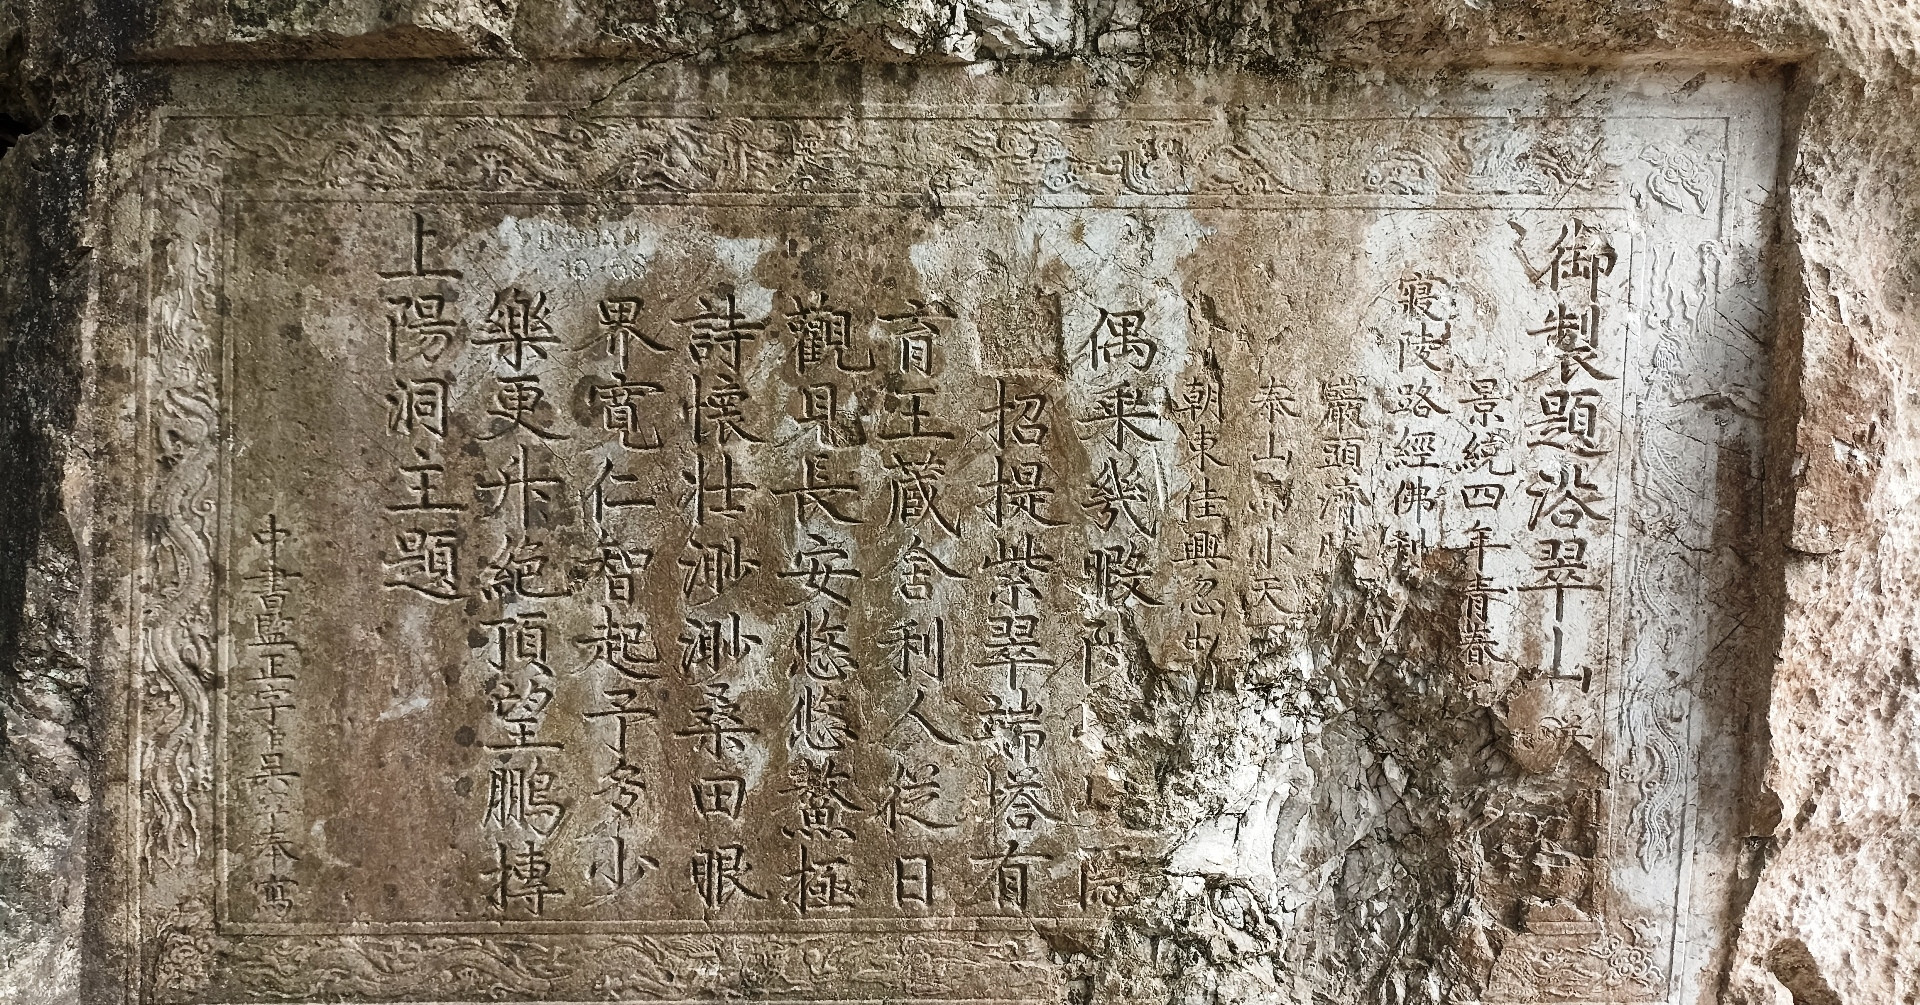 御製題浴翠山
景統四年青春
寢陵路經佛
巖頭濟勝
泰山而小天
朝東佳興忽
偶乘幾暇
招提紫翠端塔有
育王藏舍利人從日
觀見長安悠悠鰲極
詩懷壯渺渺桑田眼
界寬仁智起予多少
樂更升絕頂望鵬摶
上陽洞主題
中書監正字臣吳 本寫